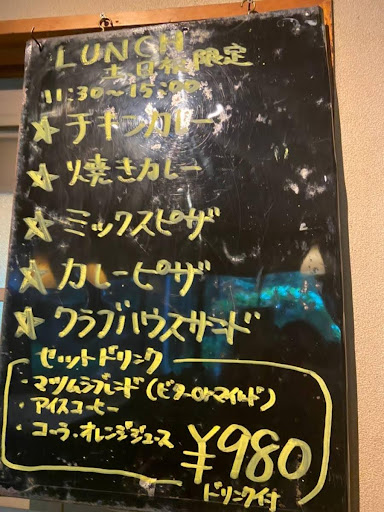 LUNCH
土日祝限定
11:30~15:00
☆チキンカレー
☆焼きカレー
☆ミックスピザ
☆カレーピザ
☆クラブハウスサンド
セットドリンク
・マツムシブレンド(ビターorマイルド)
・アイスコーヒー
・コーラ・オレンジジュース
¥980
ドリンク付